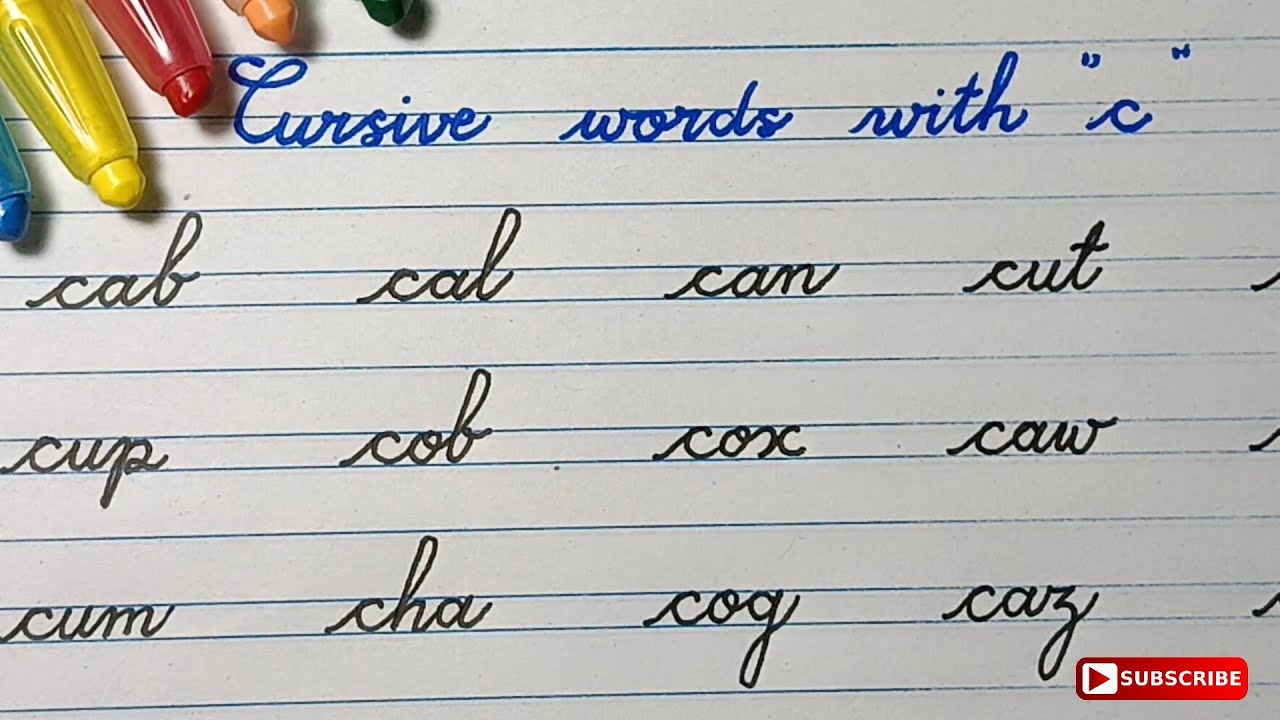 Cursive words with "c"
cab cal can cut
cup cob cox caw
cum cha cog caz
SUBSCRIBE